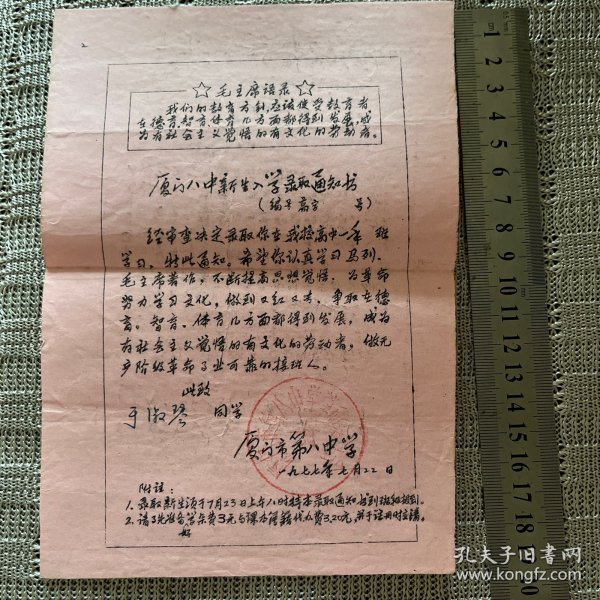 ☆毛主席语录☆
我们的教育方针,应该使受教育者
在德育、智育、体育几方面都得到发展,成
为有社会主义觉悟的有文化的劳动者。
厦门八中新生入学录取通知书
(编号高字 号)
经审查决定录取你在我校高中一年 班
学习,特此通知。希望你认真学习马列、
毛主席著作,不断提高思想觉悟,为革命
努力学习文化,做到又红又专,争取在德
育、智育、体育几方面都得到发展,成为
有社会主义觉悟的有文化的劳动者,做无
产阶级革命事业可靠的接班人。
此致
于淑琴 同学
厦门市第八中学
一九七七年七月22日
附注:
1.录取新生须于7月23日上午八时持本录取通知书到班级报到。
2.请预先准备学杂费3元与课本簿籍代办费3.20元,并于注册时交清。
孔夫子旧书网
www.kongfz.com
1
2
3
4
5
6
7
8
9
10
11
12
13
14
15
16
17
18
19
20